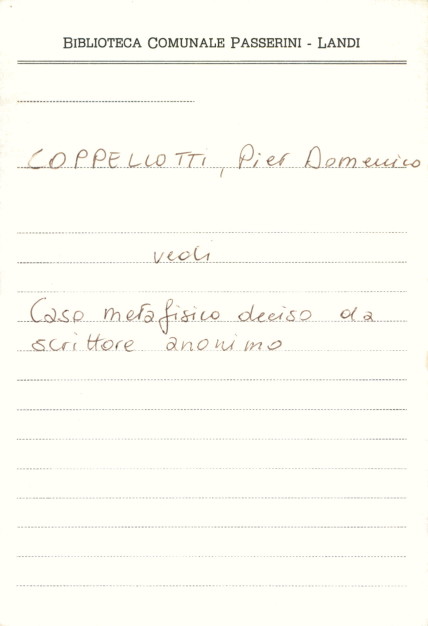 BIBLIOTECA COMUNALE PASSERINI - LANDI
COPPELLOTTI, Pier Domenico
vedi
Caso metafisico deciso da
scrittore anonimo